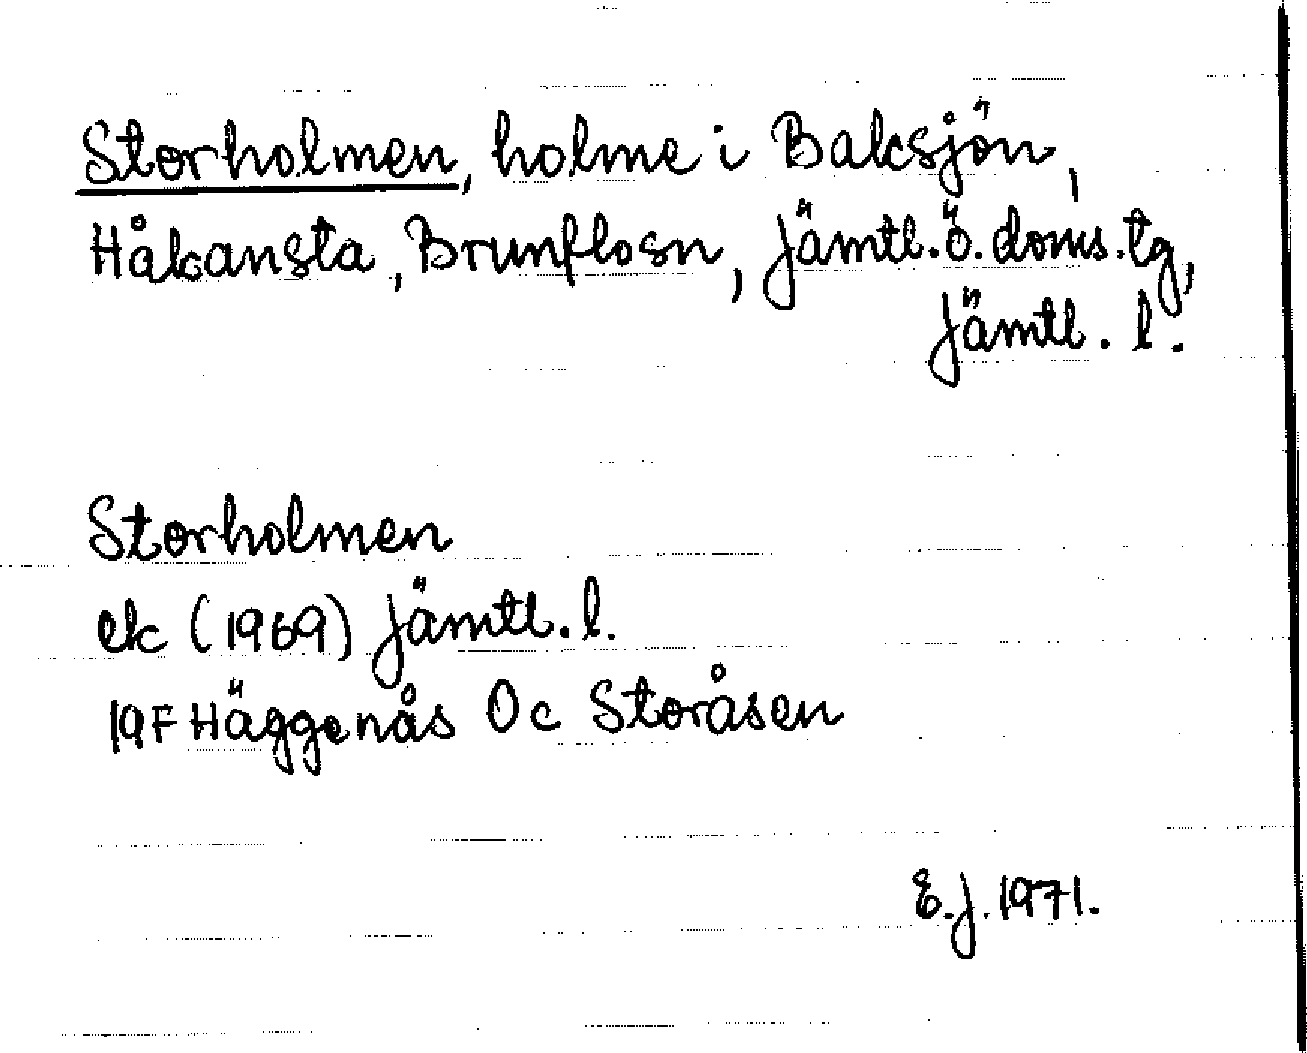 Storholmen, holme i Baksjön,
Håkansta, Brunflosn, Jämtl. ö. doms. tg,
Jämtl. l.
Storholmen
ek (1969) Jämtl. l.
19F Häggenås Oc Storåsen
E.J. 1971.